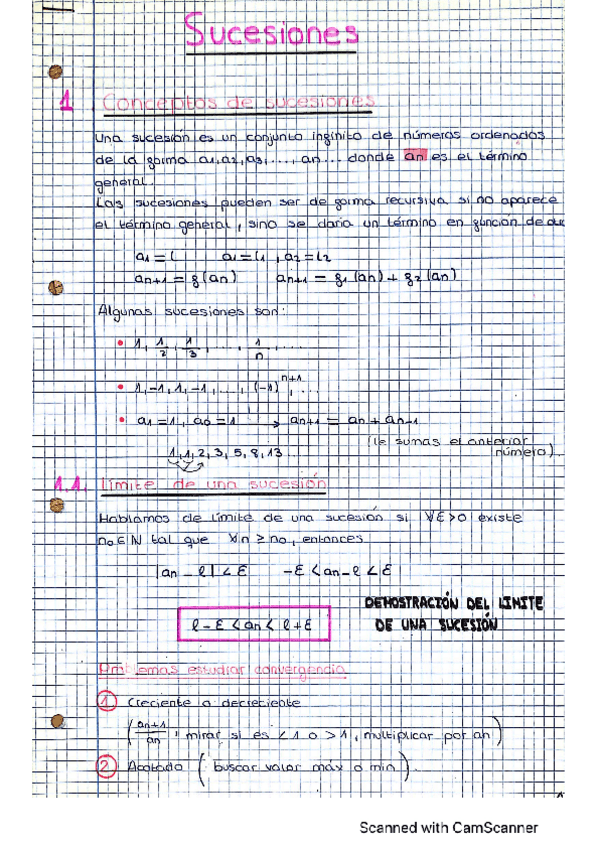 Sucesiones
1 Conceptos de sucesiones
Una sucesión es un conjunto infinito de números ordenados
de la forma a1, a2, a3, ..., an ... donde an es el término
general.
Las sucesiones pueden ser de forma recursiva si no aparece
el término general, sino se daría un término en función de
a1 = l a1 = l1, a2 = l2
an+1 = g(an) an+1 = g1(an) + g2(an)
Algunas sucesiones son:
• 1, 1/2, 1/3, ..., 1/n, ...
• 1, -1, 1, -1, ..., (-1)^n+1, ...
• a1 = 1, a0 = 1 → an+1 = an + an-1
(le sumas el anterior
número)
1, 1, 2, 3, 5, 8, 13 ...
1.1. Límite de una sucesión
Hablamos de límite de una sucesión si ∀ε>0 existe
n0 ∈ N tal que ∀n ≥ n0, entonces
|an - l| < ε -ε < an - l < ε
DEMOSTRACIÓN DEL LIMITE
DE UNA SUCESIÓN
l - ε < an < l + ε
Problemas estudiar convergencia
1 Creciente o decreciente
(an+1/an, mirar si es < 1 o > 1, multiplicar por an)
2 Acotada (buscar valor máx o min).
Scanned with CamScanner